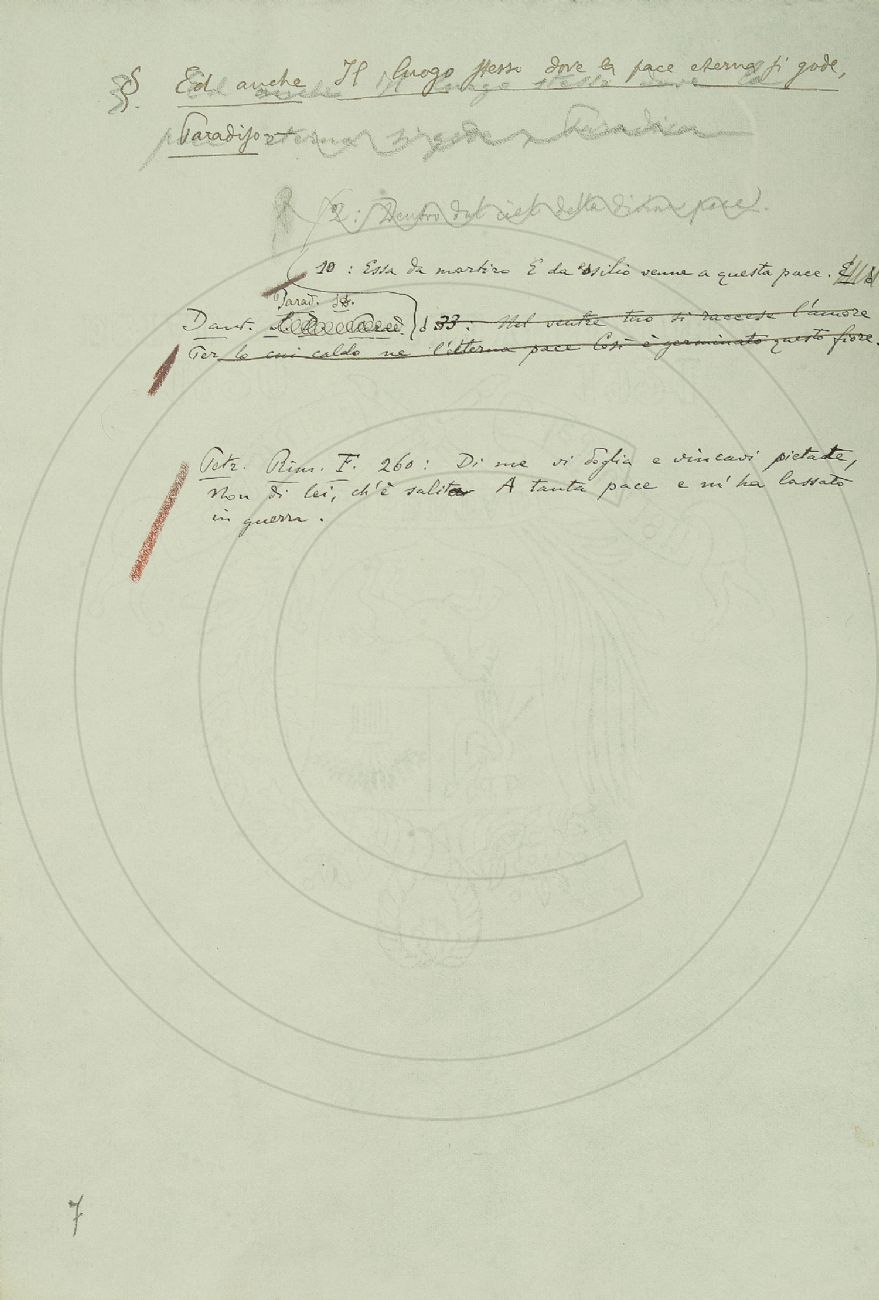 §. Ed anche Il luogo stesso dove la pace eterna si gode,
Paradiso
2: Dentro dal ciel della divina pace.
10: Essa da martiro E da esilio venne a questa pace. E
Parad.
Dant. 33. Nel ventre tuo si raccese l'amore
Per lo cui caldo ne l'etterna pace Così è germinato questo fiore.
Petr. Rim. F. 260: Di me vi doglia e vincavi pietate,
Non di lei, ch'è salita A tanta pace e m'ha lassato
in guerra.
7